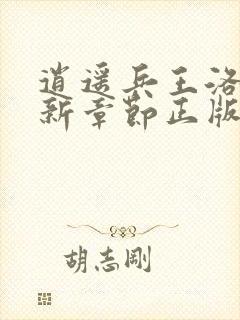 逍遥兵王洛
新章节正版
胡志刚